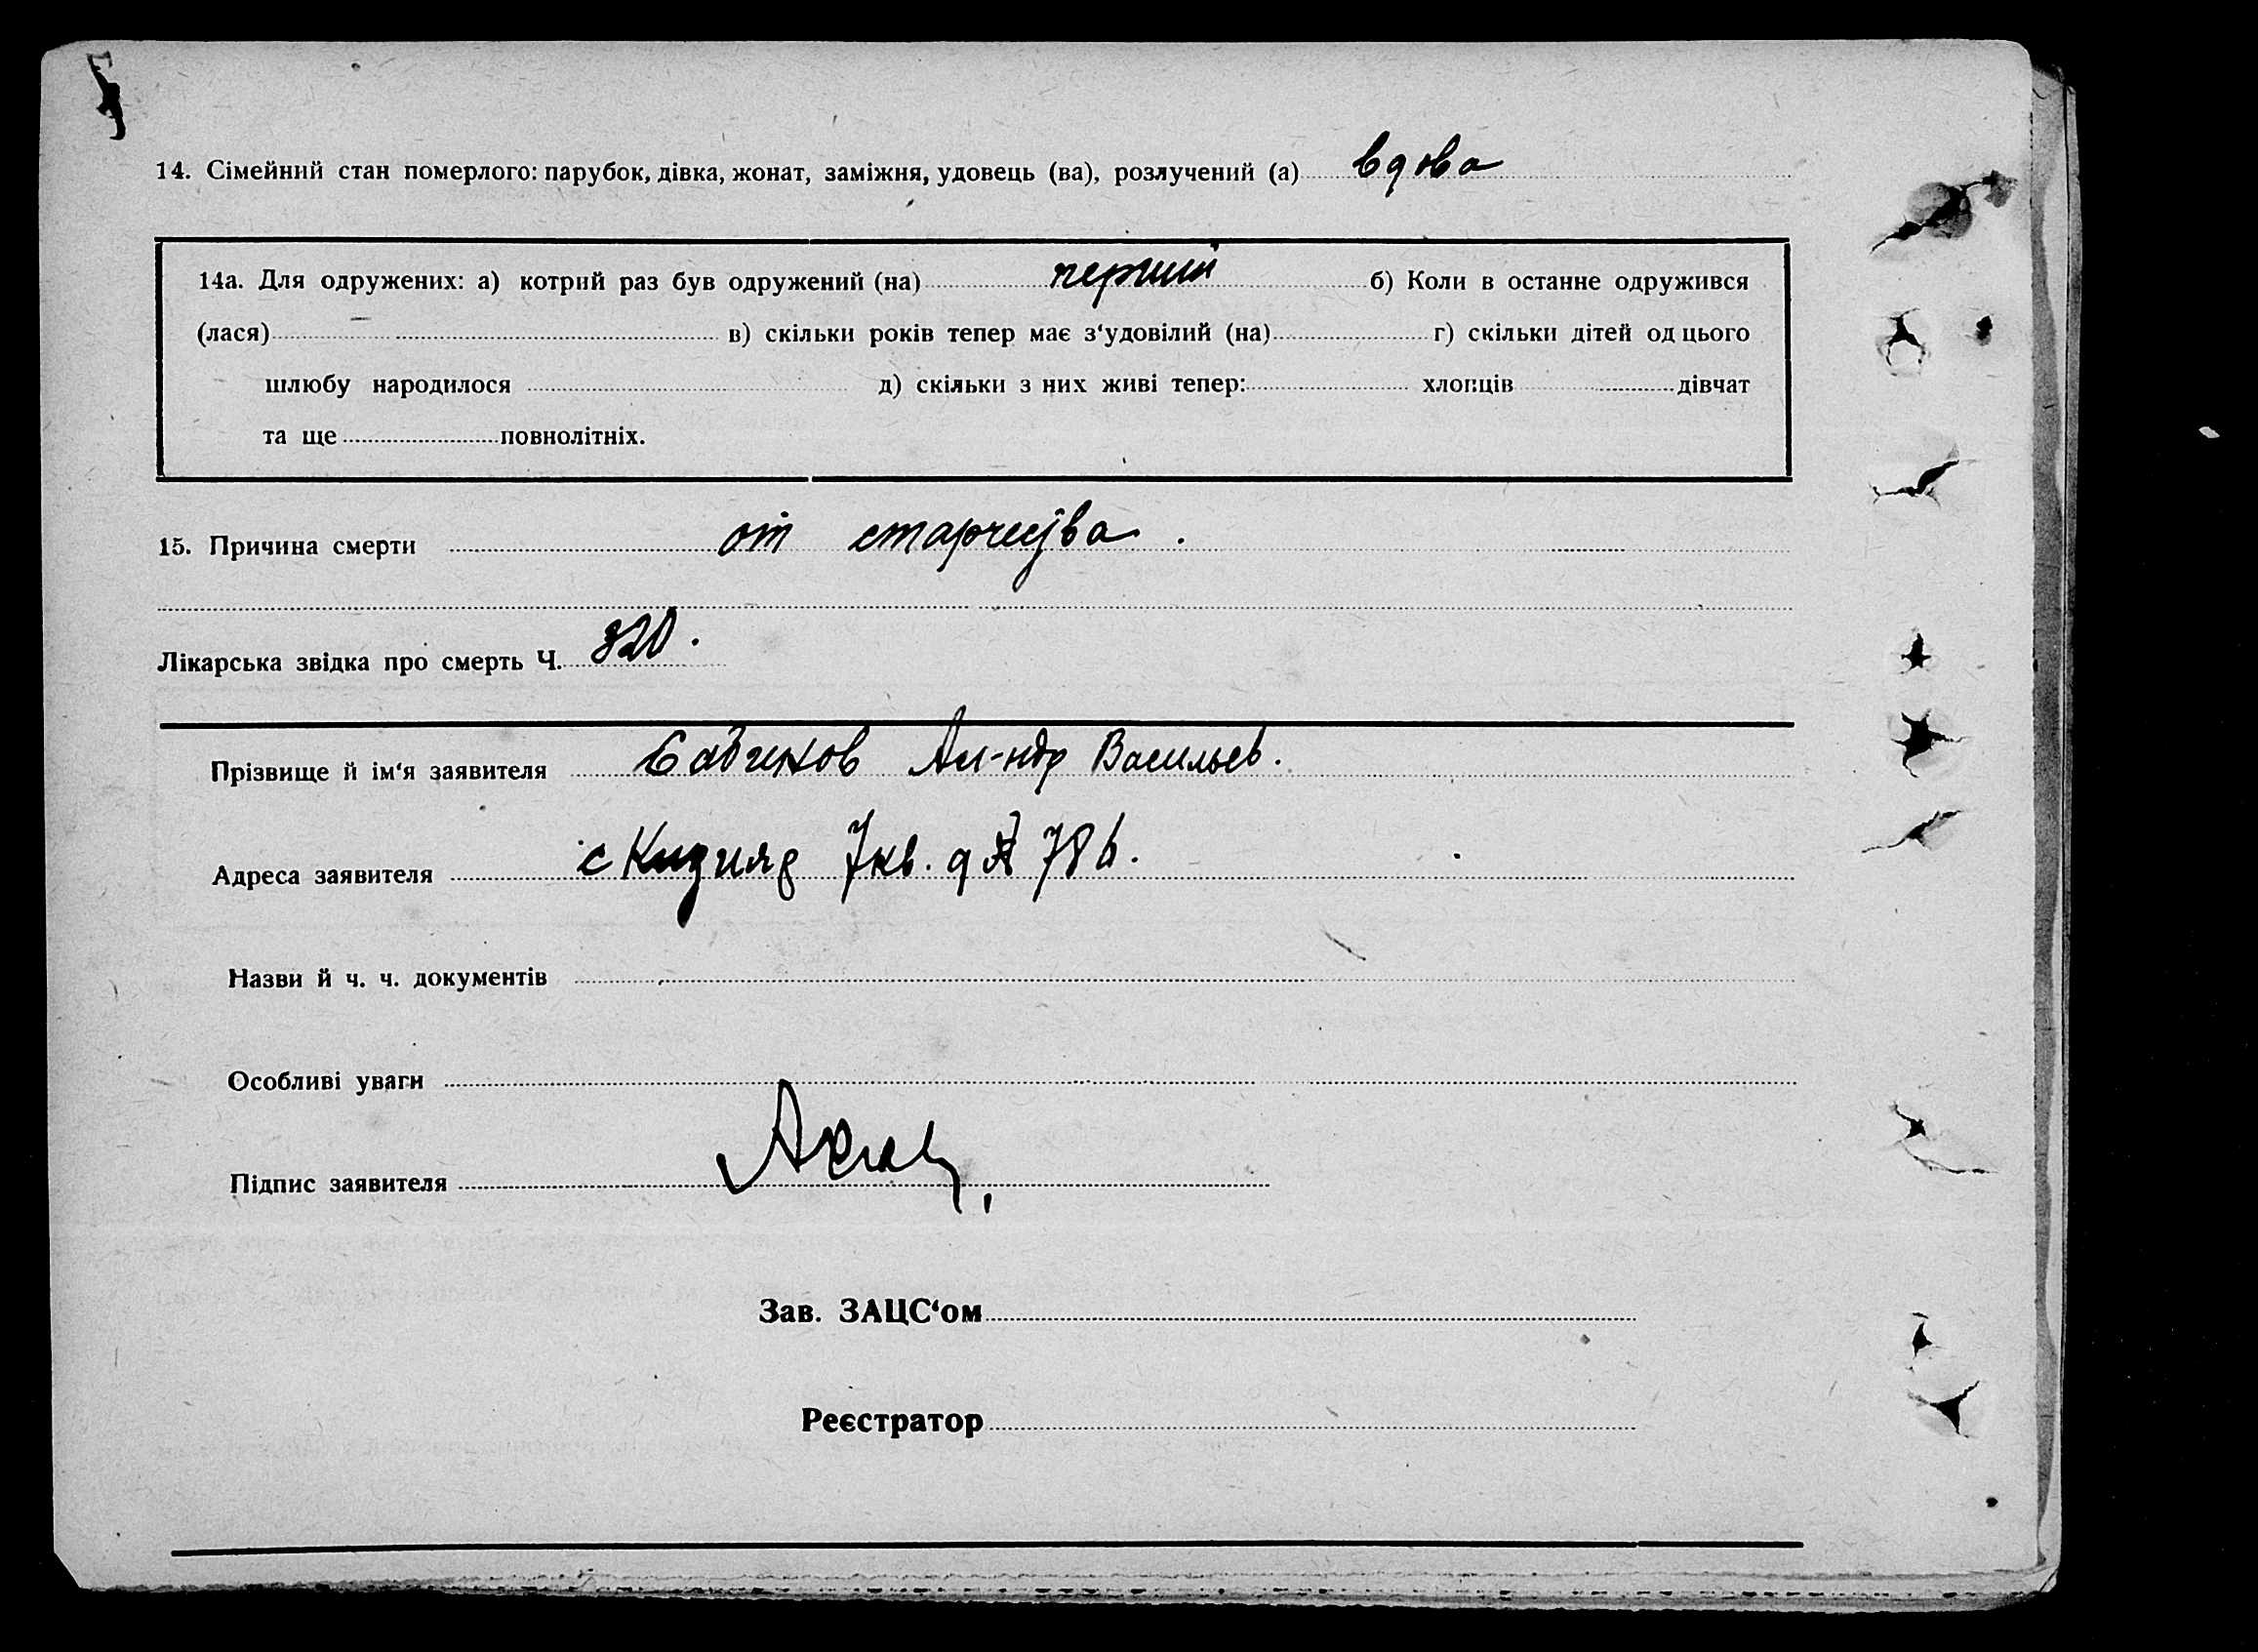 14. Сімейний стан померлого: парубок, дівка, жонат, заміжня, удовець (ва), розлучений (а) вдова
14а. Для одружених: а) котрий раз був одружений (на) перший б) Коли в останне одружився
(лася) — в) скільки років тепер має з‘удовілий (на) г) скільки дітей од цього
шлюбу народилося д) скільки з них живі тепер: хлопців дівчат
та ще повнолітніх.
15. Причина смерти от старчества.
Лікарська звідка про смерть Ч. 320.
Прізвище й ім‘я заявителя Ал-ндр Васильев.
Адреса заявителя с 7 кв. д 78
Назви й ч. ч. документів
Особливі уваги
Підпис заявителя
Зав. ЗАЦС‘ом
Реєстратор